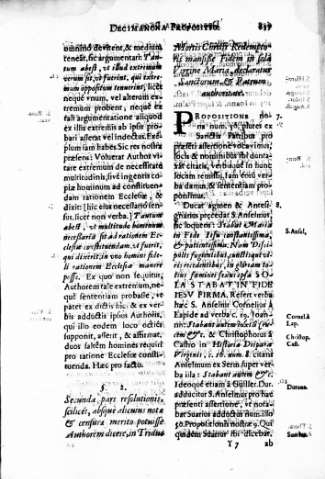 DECIMANONA PROPOSITIO. 837
omnino devitent, & medium
teneāt, sic argumentar: Tan-
tum abest, ut illud extremum
verum sit, ut fuerint, qui extre-
mum oppositum tenuerint, licèt
neque unum, vel alterum ex-
tremum probent, neque ex
tali argumentatione aliquod
ex illis extremis ab ipsis pro-
bari asserat vel indectus. Exē-
plum iam habes. Sic res nostra
præsens: Voluerat Author vi-
tare extremum de necessitate
multitudinis, sive ingentis co-
piæ hominum ad constituen-
dam rationem Ecclesiæ, &
dixit: (hic eius necessario erūt
sua, licèt non verba.) Tantum
abest, ut multitudo hominum
necessaria sit ad rationem Ec-
clesiæ constituendam, ut fuerit,
qui dixerit, in uno homine fide-
li rationem Ecclesiæ manere
posse. Ex quo non sequitur,
Authorem tale extremum, ne-
que sententiam probasse, ut
patet ex dictis hic. & ex ver-
bis adductis ipsius Authoris,
qui illo eodem loco dicit:
supponit, asserit, & affirmat,
duos saltem homines requiri
pro ratione Ecclesiæ consti-
tuenda. Hæc pro facto.
§. 2.
Secunda pars resolutionis,
scilicèt, absque aliqua nota
& censura merito potuisse
Authorem dicere, in Triduo
Mortis Christi Redempto-
ris mansisse Fidem in solâ
Virgine Maria, declaratur
Sanctorum, & Patrum
authoritate.
PROPOSITIONE no- 7.
na num. 9. plures ex
Sanctis Patribus pro
præsenti assertione vocavimus,
locis & nominibus
citatis, verba usque in hunc
locum remissa, sam eorū ver-
ba damus, & sententiam pro-
ponimus.
Ducat agmen & Antesi- 8.
gnanus præcedat S. Anselmus, S. Ansel.
sic loquens: Stabat Maria
in Fide Iesu constantissima,
& patientissima: Nam Disci-
pulis fugientibus, cunctisque vi-
ris recedentibus, in gloriam to-
tius feminei sexus ipsa SO-
LA STABAT IN FIDE
IESU FIRMA. Refert verba
hæc S. Anselmi Cornelius à Cornel. à
Lapide ad verba c. 19. Joan- Lap.
nis: Stabant autem iuxtà cru-
cem &c. & Christophorus à Christop.
Castro in Historia Deiparæ Cast.
Virginis, c. 16. num. 8. citans
Anselmum ex Serm. super ver-
ba illa: Stabant autem &c.
Ideoque etiam à Guiller. Dur. Durant.
adducitur S. Anselmus pro hac
præsenti assertione, ut notabat
Suarius adductus num. illo
50. Propositionis nostræ 9. Qui
quidem Suarius ibi dicebat, Suarius.
Y 7 ab